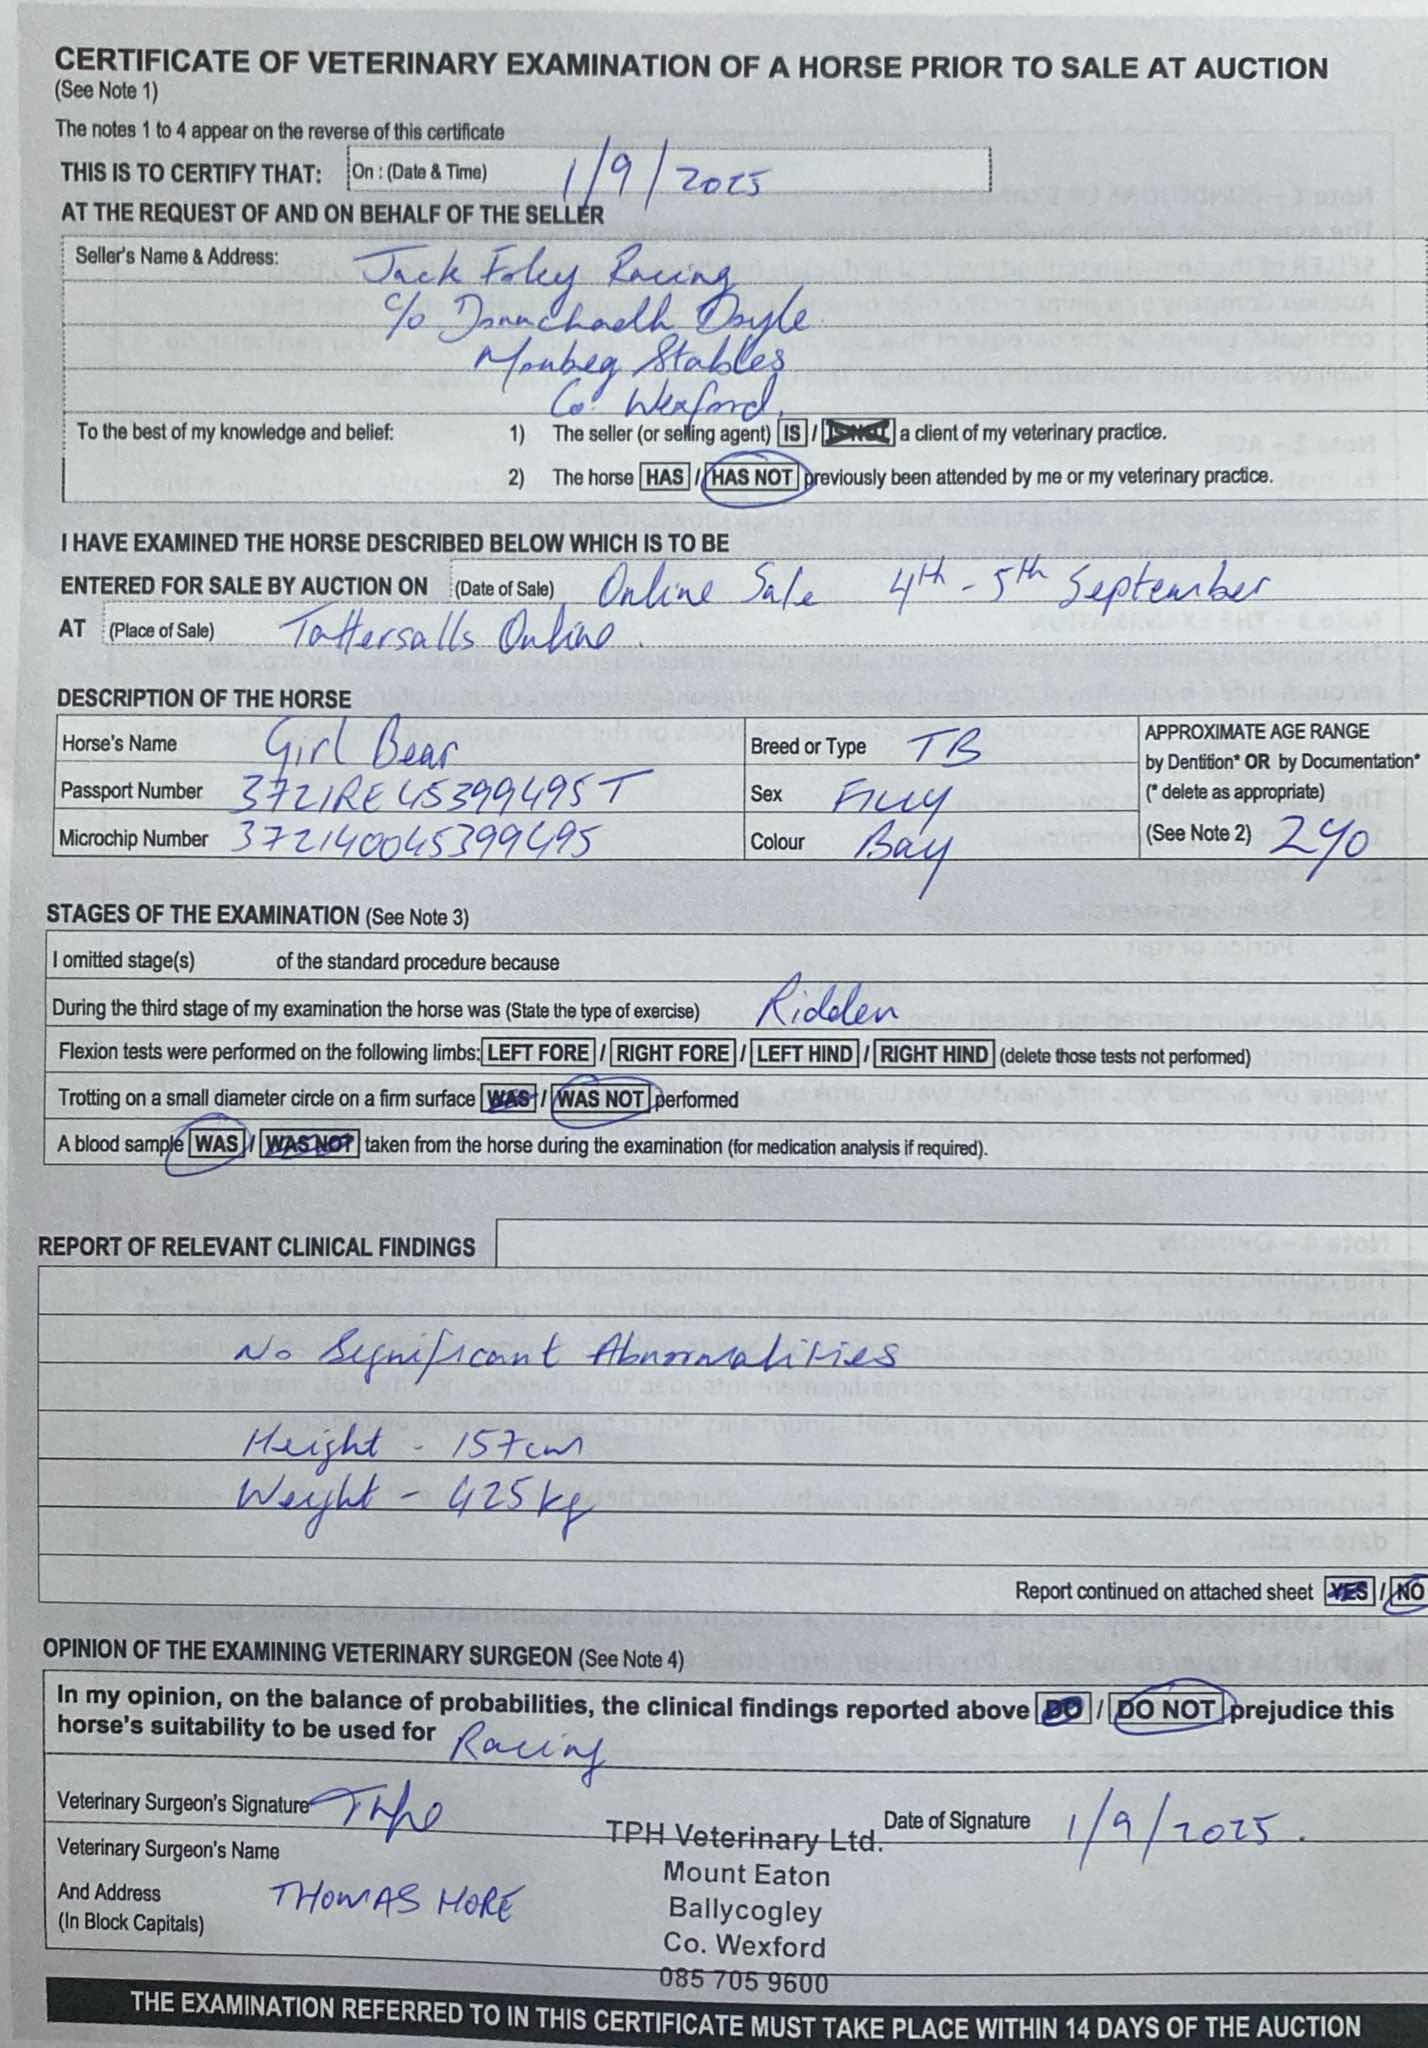 CERTIFICATE OF VETERINARY EXAMINATION OF A HORSE PRIOR TO SALE AT AUCTION
(See Note 1)
The notes 1 to 4 appear on the reverse of this certificate
THIS IS TO CERTIFY THAT: On : (Date & Time) 1/9/2025
AT THE REQUEST OF AND ON BEHALF OF THE SELLER
Seller's Name & Address: Jack Foley Racing
c/o Donnchadh Doyle
Monbeg Stables
Co. Wexford.
To the best of my knowledge and belief: 1) The seller (or selling agent) IS / IS NOT a client of my veterinary practice.
2) The horse HAS / HAS NOT previously been attended by me or my veterinary practice.
I HAVE EXAMINED THE HORSE DESCRIBED BELOW WHICH IS TO BE
ENTERED FOR SALE BY AUCTION ON (Date of Sale) Online Sale 4th - 5th September
AT (Place of Sale) Tattersalls Online.
DESCRIPTION OF THE HORSE
Horse's Name Girl Bear Breed or Type TB APPROXIMATE AGE RANGE
by Dentition* OR by Documentation*
Passport Number 372IRE45399495T Sex Filly (* delete as appropriate)
Microchip Number 372140045399495 Colour Bay (See Note 2) 2yo
STAGES OF THE EXAMINATION (See Note 3)
I omitted stage(s) of the standard procedure because
During the third stage of my examination the horse was (State the type of exercise) Ridden
Flexion tests were performed on the following limbs: LEFT FORE / RIGHT FORE / LEFT HIND / RIGHT HIND (delete those tests not performed)
Trotting on a small diameter circle on a firm surface WAS / WAS NOT performed
A blood sample WAS / WAS NOT taken from the horse during the examination (for medication analysis if required).
REPORT OF RELEVANT CLINICAL FINDINGS
No Significant Abnormalities
Height - 157cm
Weight - 425kg
Report continued on attached sheet YES / NO
OPINION OF THE EXAMINING VETERINARY SURGEON (See Note 4)
In my opinion, on the balance of probabilities, the clinical findings reported above DO / DO NOT prejudice this
horse's suitability to be used for Racing
Veterinary Surgeon's Signature Date of Signature 1/9/2025.
TPH Veterinary Ltd.
Veterinary Surgeon's Name Mount Eaton
And Address THOMAS HORE Ballycogley
(In Block Capitals) Co. Wexford
085 705 9600
THE EXAMINATION REFERRED TO IN THIS CERTIFICATE MUST TAKE PLACE WITHIN 14 DAYS OF THE AUCTION